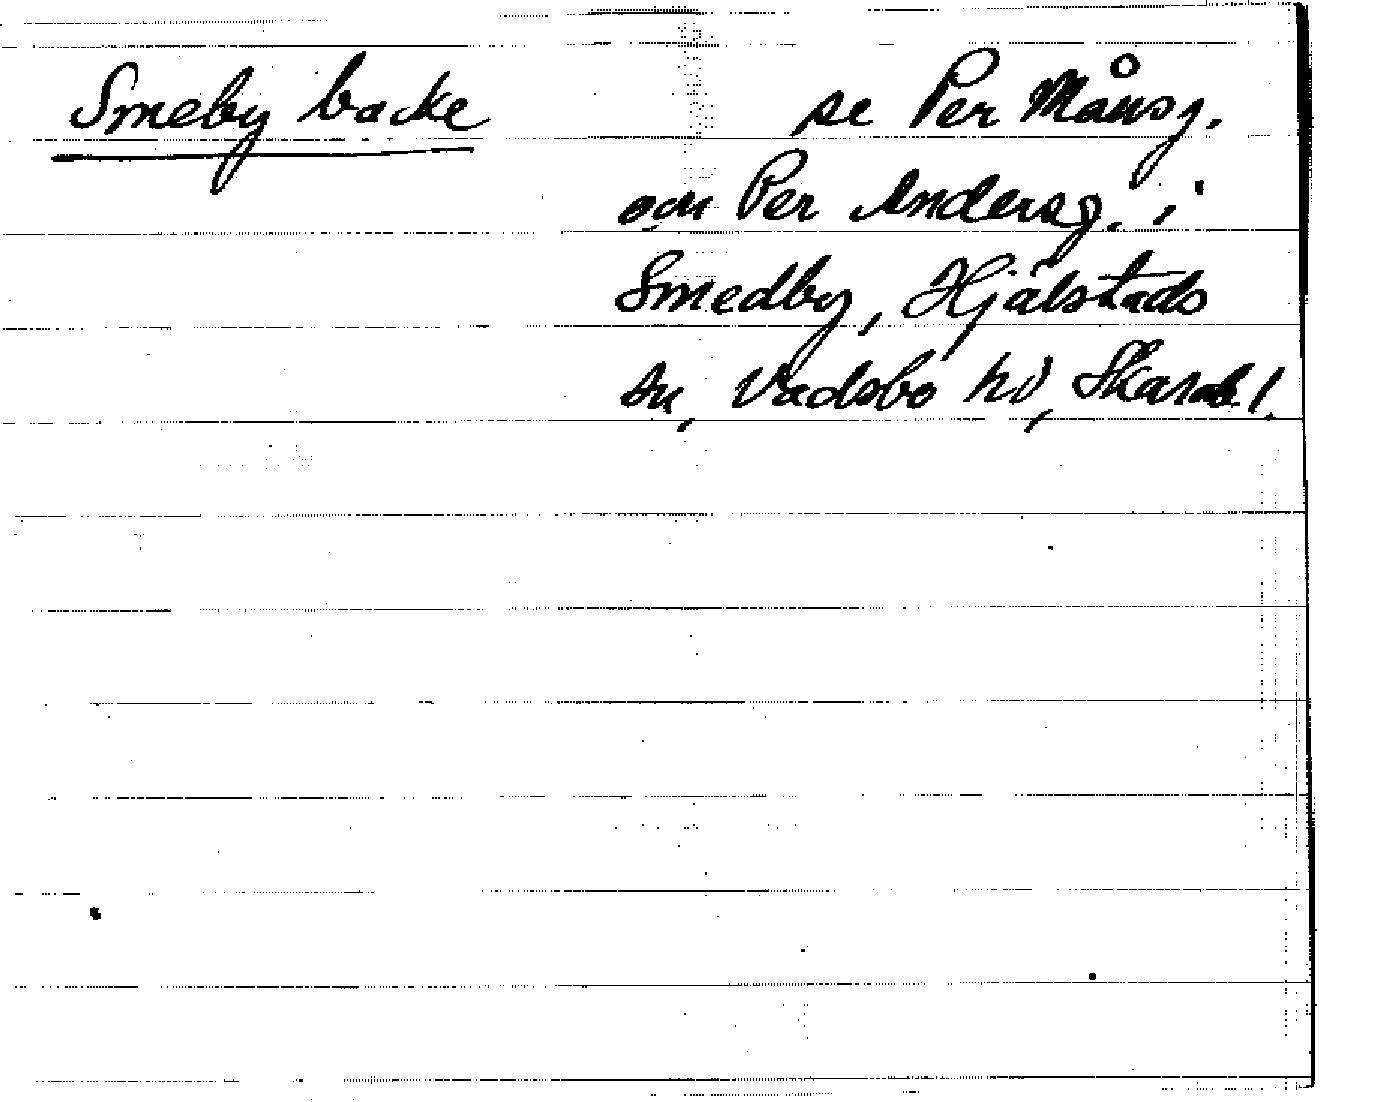 Smeby backe se Per Månsz.
och Per Andersz. i
Smedby, Hjälstads
sn, Vadsbo hd, Skarab. l.